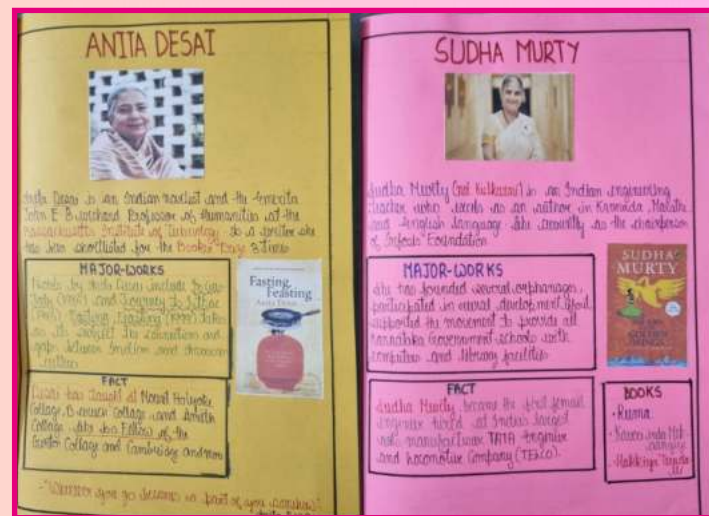 ANITA DESAI
Anita Desai is an Indian novelist and the Emerita
John E. Burchard Professor of Humanities at the
Massachusetts Institute of Technology. As a writer she
has been shortlisted for the Booker Prize 3 times
MAJOR-WORKS
Novels by Anita Desai include
and Journey to Ithaca
Fasting, Feasting (1999) takes
as its subject the connections and
gaps between Indian and American
culture
Fasting,
Feasting
ANITA DESAI
FACT
Desai has taught at Mount Holyoke
Collage, Baruch Collage and Smith
Collage. She is a Fellow of the
Collage and Cambridge
"Wherever you go becomes a part of you somehow"
SUDHA MURTY
Sudha Murty (née Kulkarni) is an Indian engineering
teacher who excels as an author in Kannada, Marathi
and English language. She as the chairperson
of Infosys Foundation
MAJOR-WORKS
She has founded several orphanages,
participated in development
supported the movement to provide all
Karnataka Government schools with
computers and library facilities
SUDHA
MURTY
FACT
Sudha Murty became the first female
engineer hired at India's largest
auto manufacturer TATA Engineer
and Locomotive Company (TELCO).
BOOKS
• Runa